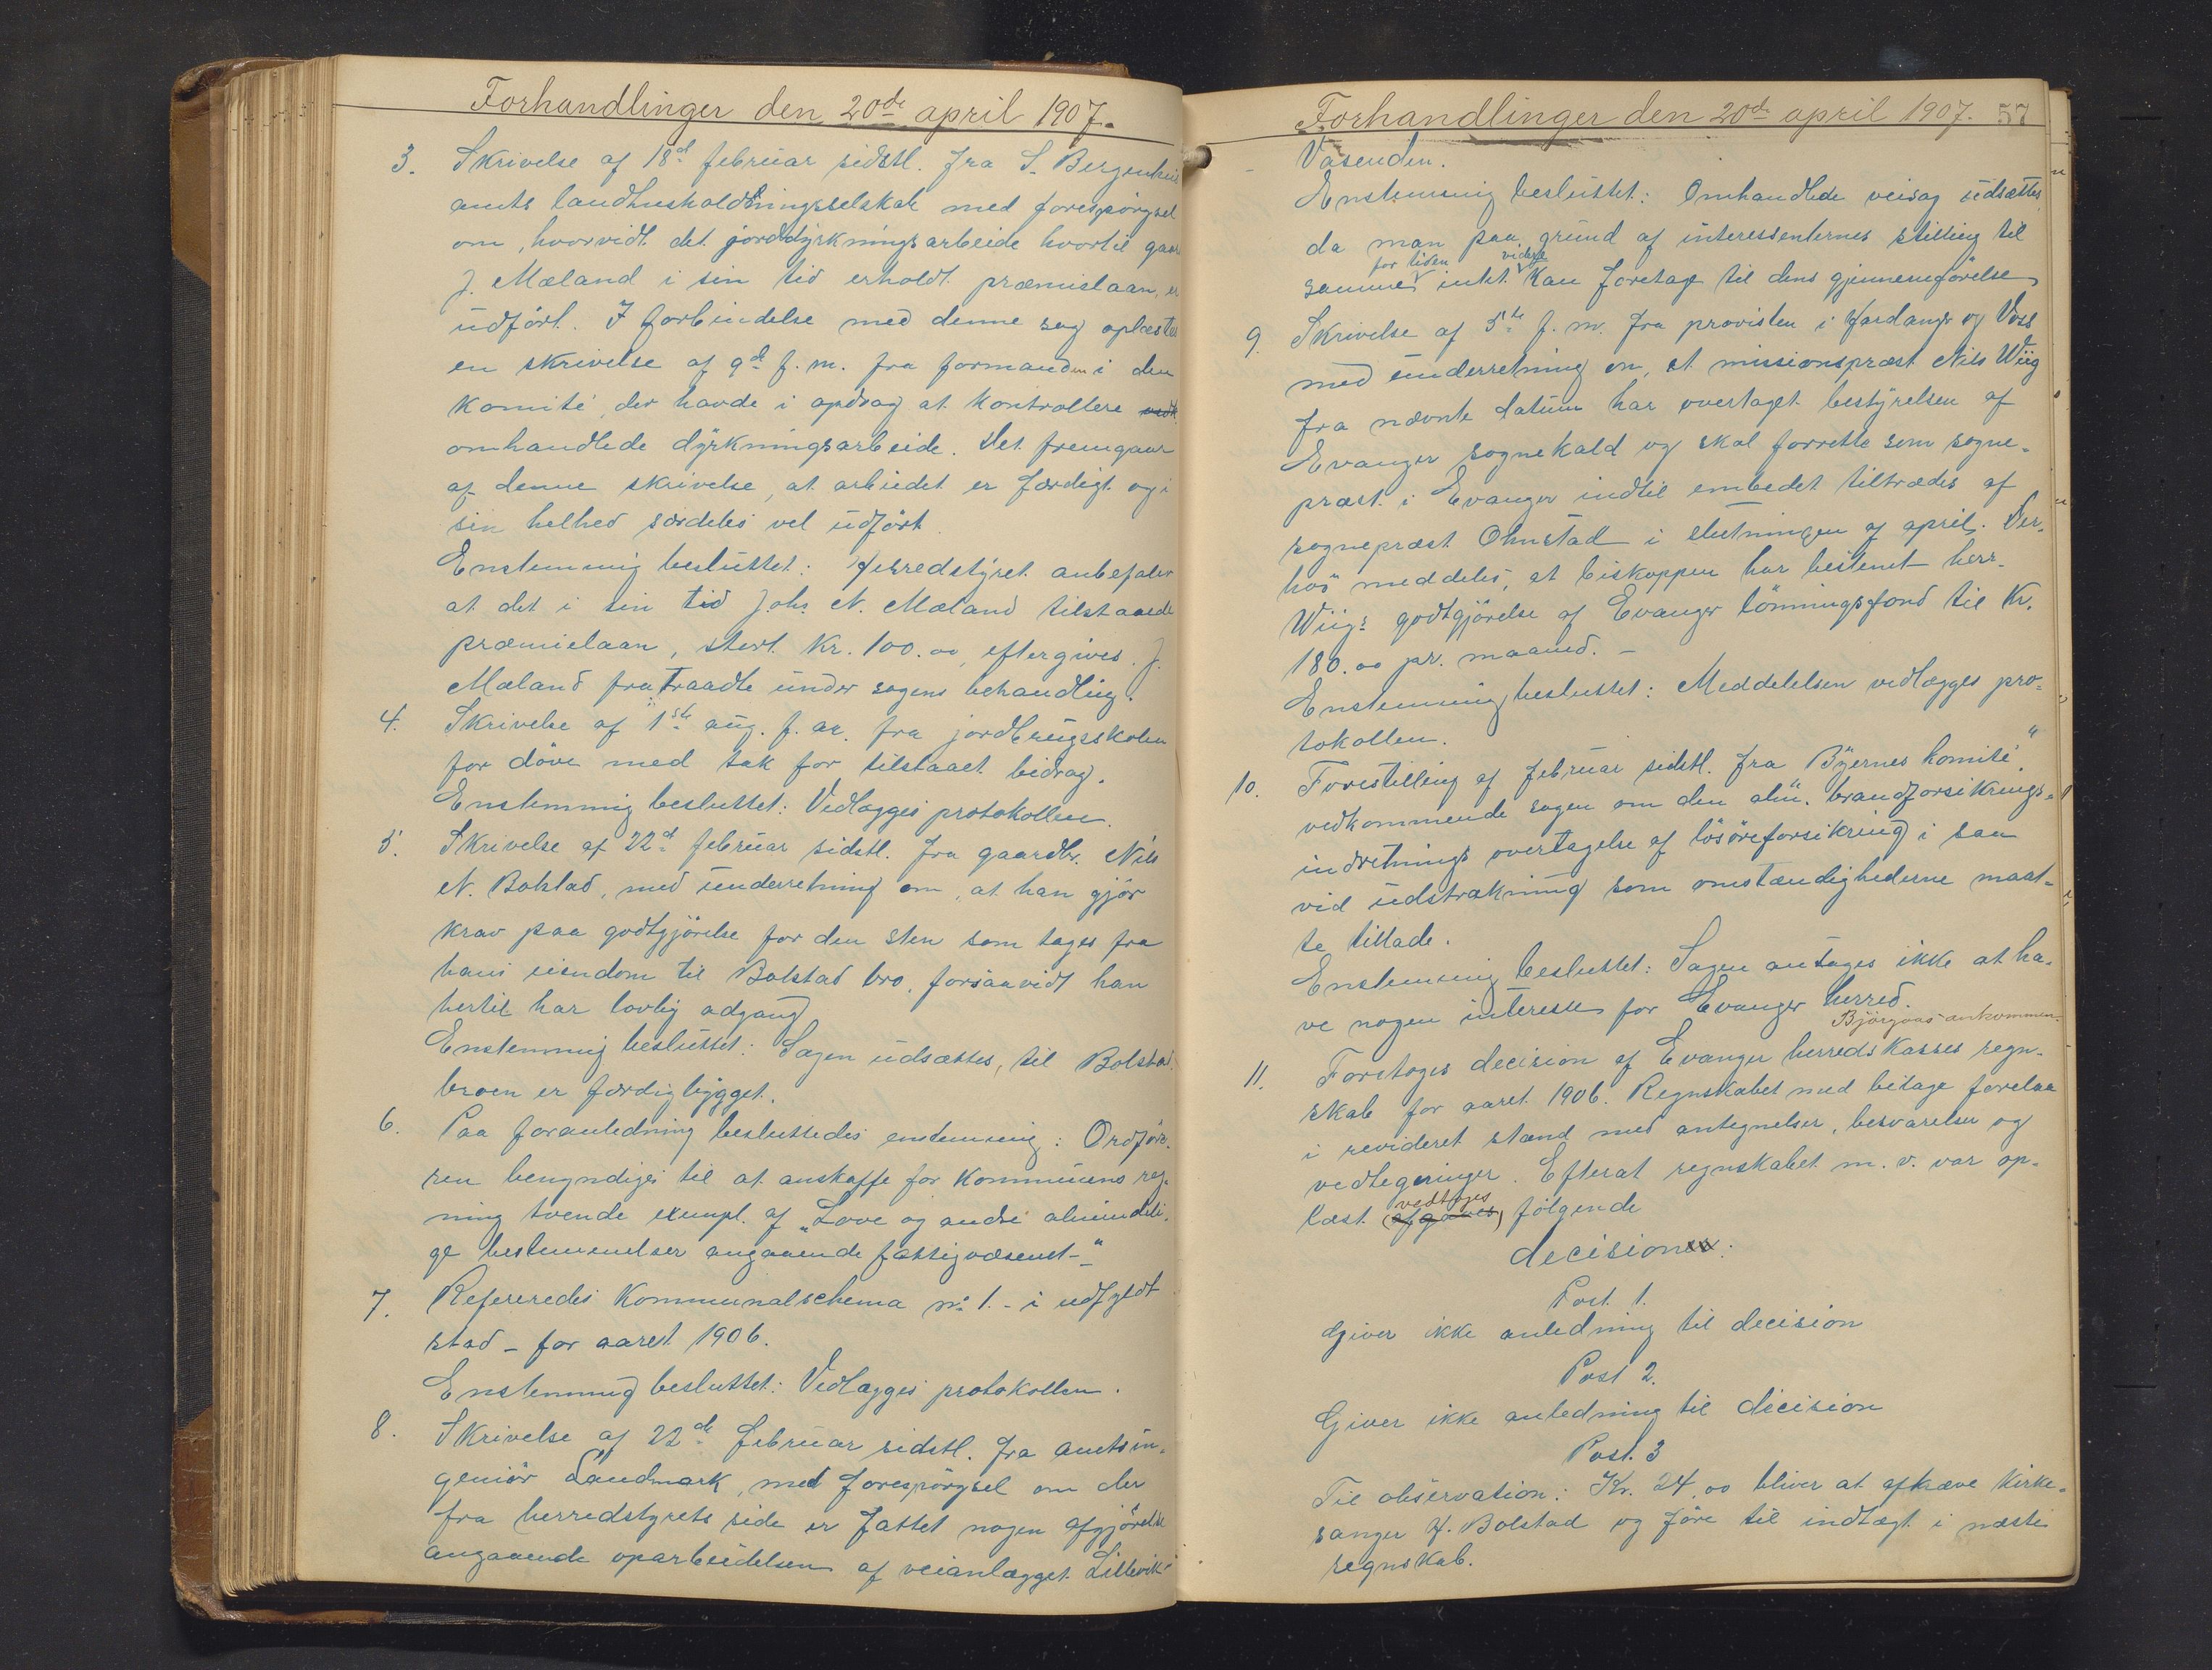 Forhandlinger den 20de april 1907.
3. Skrivelse af 18d februar sidstl. fra S. Bergenhus
amts landhusholdningsselskab med forespörgsel
om, hvorvidt det jorddyrkningsarbeide hvortil gaar
J. Mæland i sin tid erholdt præmielaan, er
udfört. I forbindelse med denne sag oplæstes
en skrivelse af 9d f. m. fra formanden i den
komité, der havde i opdrag at kontrollere
omhandlede dyrkningsarbeide. Det fremgaar
af denne skrivelse, at arbeidet er færdigt og i
sin helhed særdeles vel udfört.
Enstemmig besluttet: Herredstyret anbefaler
at det i sin tid Johs. N. Mæland tilstaaede
præmielaan, stort kr. 100.00, eftergives. J.
Mæland fratraadte under sagens behandling.
4. Skrivelse af 1ste aug. f. aar. fra jordbrugsskolen
for döve med tak for tilstaaet bidrag.
Enstemmig besluttet: Vedlægges protokollen.
5. Skrivelse af 22d februar sidstl. fra gaardbr. Nils
N. Bolstad, med underretning om, at han gjör
krav paa godtgjörelse for den sten som tages fra
hans eiendom til Bolstad bro, forsaavidt han
hertil har lovlig adgang
Enstemmig besluttet: Sagen udsættes, til Bolstad
broen er færdigbygget.
6. Paa foranledning besluttedes enstemmig: Ordföre-
ren bemyndiges til at anskaffe for kommunens reg-
ning tvende exempl. af „Love og andre almindeli-
ge bestemmelser angaaende fattigvæsenet-“
7. Refereredes Kommunalschema no 1. - i udfyldt
stad - for aaret 1906.
Enstemmig besluttet: Vedlægges protokollen.
8. Skrivelse af 22de februar sidstl. fra amtsin-
geniör Landmark, med forespörgsel om der
fra herredstyrets side er fattet nogen afgjörelse
angaaende oparbeidelsen af veianlægget Lillevik-
Forhandlinger den 20de april 1907. 57
Vasenden.
Enstemmig besluttet: Omhandlede veisag udsættes,
da man paa grund af interessenternes stilling til
for tiden videre
samme intet kan foretage til dens gjennemförelse
9. Skrivelse af 5te f. m. fra provsten i Hardanger og Voss
med underretning om, at missionspræst Nils Wiig
fra nævnte datum har overtaget bestyrelsen af
Evanger sognekald og skal forrette som sogne-
præst i Evanger indtil embedet tiltrædes af
sognepræst Ohnstad i slutningen af april. Der-
hos meddeles, at biskoppen har bestemt herr.
Wiigs godtgjörelse af Evanger lönningsfond til kr.
180.00 pr. maaned. -
Enstemmig besluttet: Meddelelsen vedlægges pro-
tokollen.
10. Forestilling af februar sidstl. fra Byernes komité“
vedkommende sagen om den alm. brandforsikrings-
indretnings overtagelse af lösöreforsikring i saa
vid udstrækning som omstændighederne maat-
te tillade.
Enstemmig besluttet: Sagen antages ikke at ha-
ve nogen interesse for Evanger herred.
Björgaas ankommen.
11. Foretoges decision af Evanger herredskasses regn-
skab for aaret 1906. Regnskabet med bilage forelaa
i revideret stand med antegnelser, besvarelser og
vedtegninger. Efterat regnskabet m. v. var op-
vedtoges
læst (afgaves) fölgende
decisioner:
Post 1.
Giver ikke anledning til decision
Post 2.
Giver ikke anledning til decision
Post. 3
Til observation: Kr. 24.00 bliver at afkræve kirke-
sanger H. Bolstad og före til indtægt i næste
regnskab.